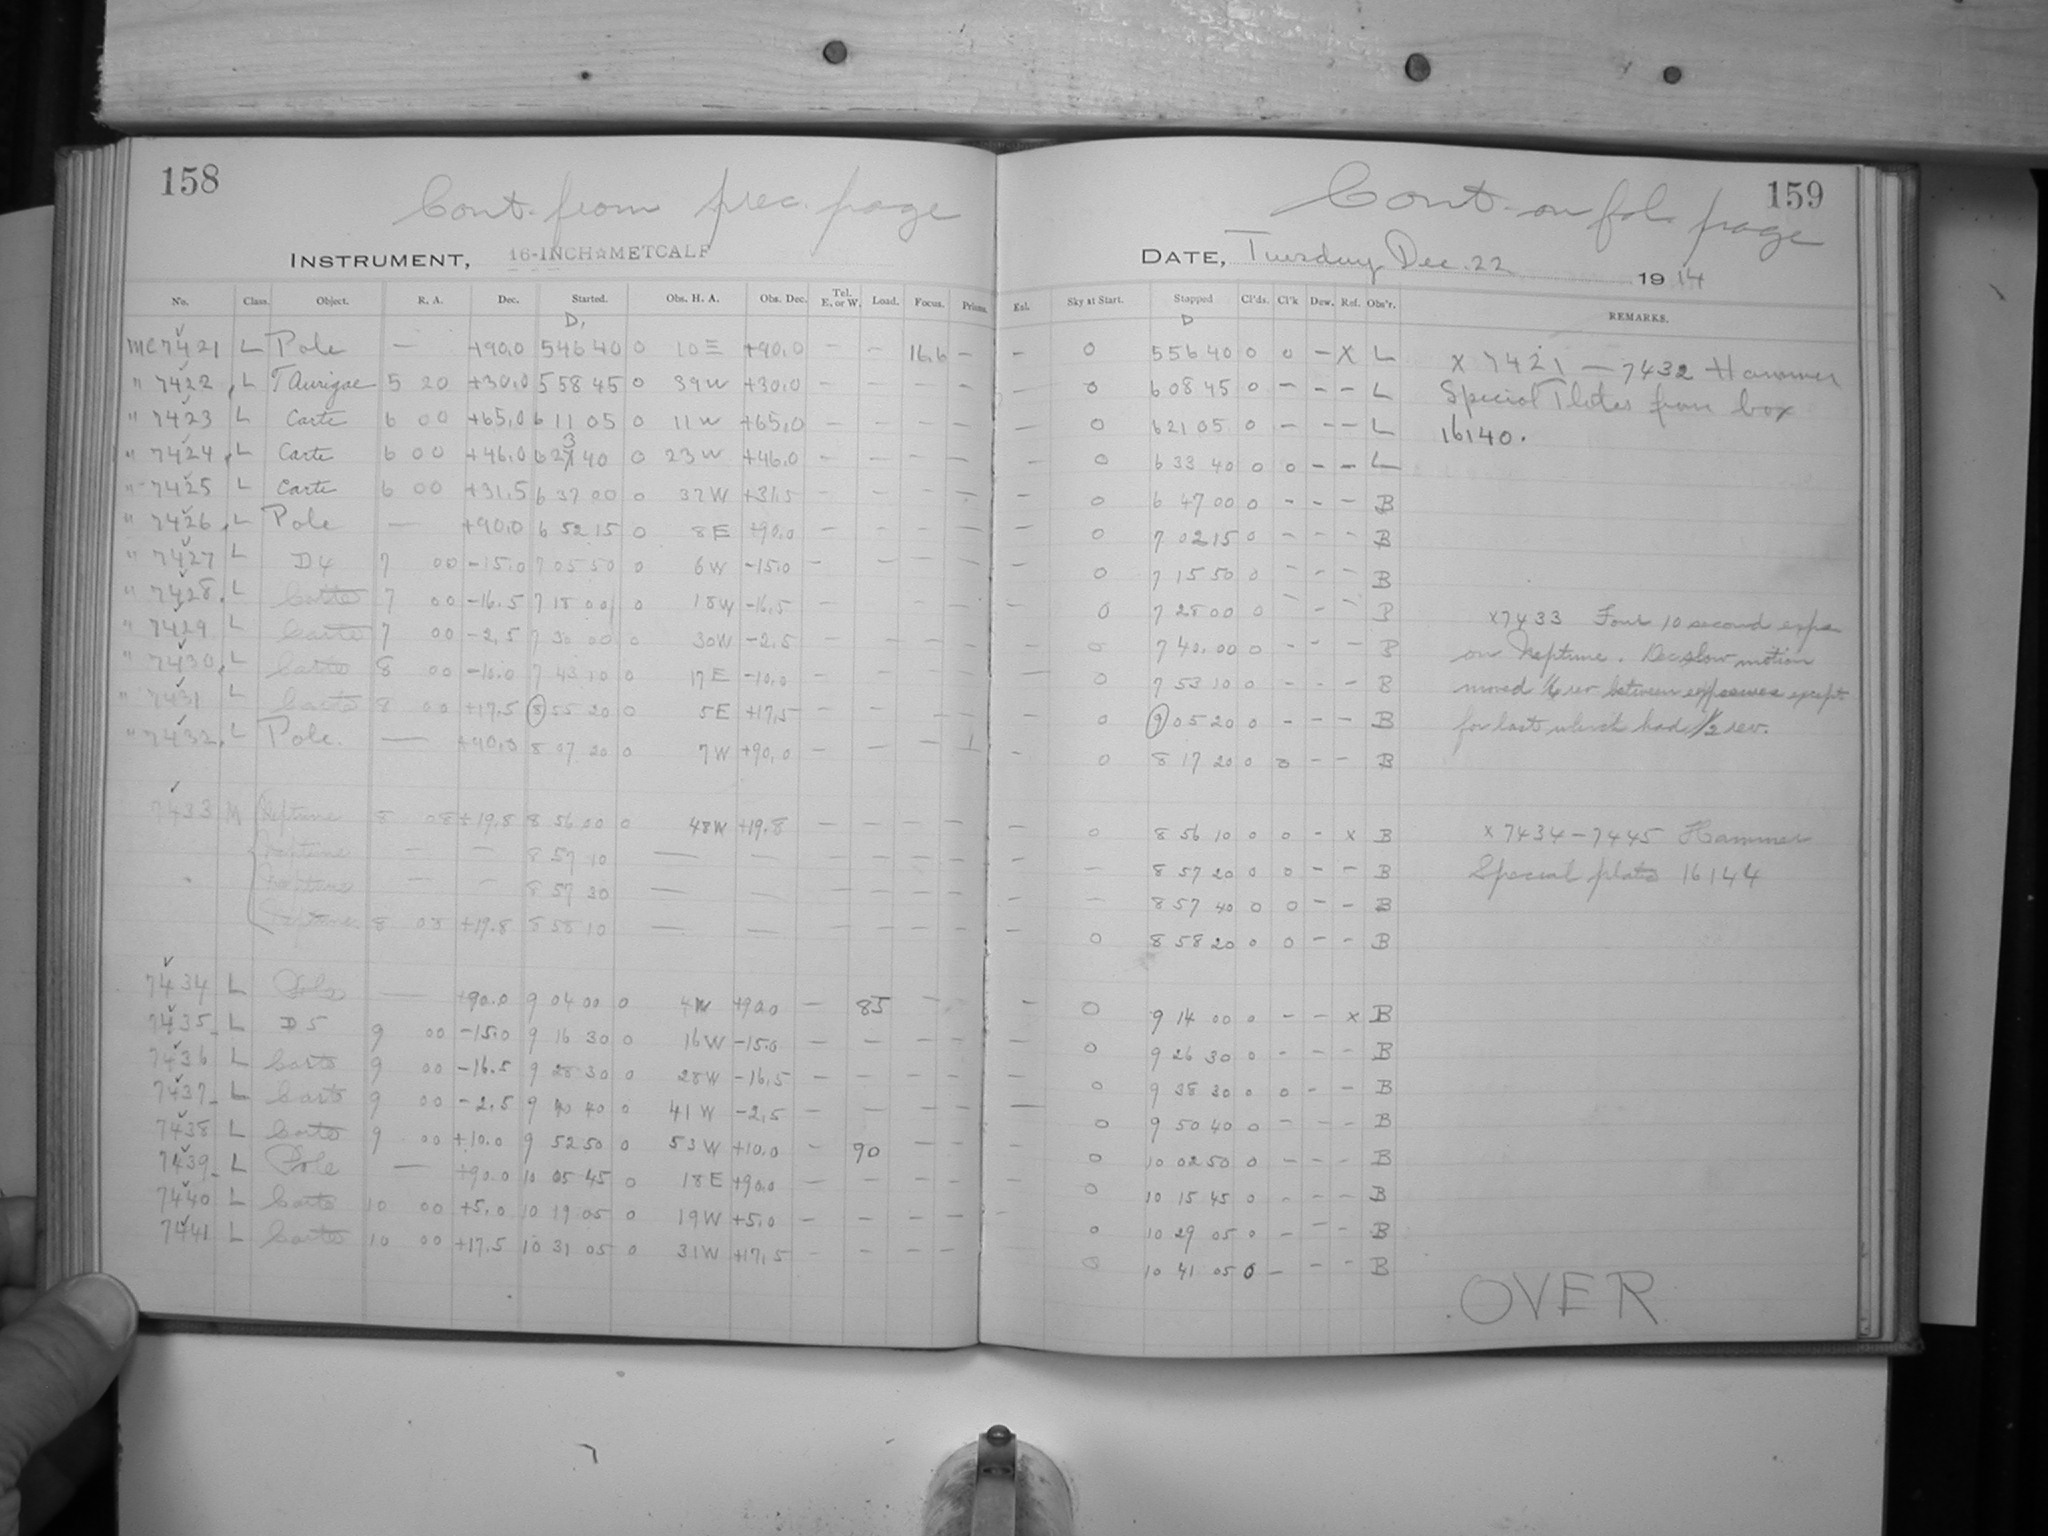 158
Cont. from prec. page
INSTRUMENT, 16-INCH☆METCALF
No. Class. Object. R. A. Dec. Started. Obs. H. A. Obs. Dec. Tel. E. or W. Load. Focus. Prisms.
D,
MC 7421 L Pole — +90.0 5 46 40 0 10 E +90.0 — — 16.6 —
" 7422 L T Aurigae 5 20 +30.0 5 58 45 0 39 W +30.0 — — — —
" 7423 L Carte 6 00 +65.0 6 11 05 0 11 W +65.0 — — — —
3
" 7424 L Carte 6 00 +46.0 6 2 40 0 23 W +46.0 — — — —
" 7425 L Carte 6 00 +31.5 6 37 00 0 32 W +31.5 — — — —
" 7426 L Pole — +90.0 6 52 15 0 8 E +90.0 — — — —
" 7427 L D4 7 00 -15.0 7 05 50 0 6 W -15.0 — — — —
" 7428 L Carte 7 00 -16.5 7 18 00 0 18 W -16.5 — — — —
" 7429 L Carte 7 00 -2.5 7 30 00 0 30 W -2.5 — — — —
" 7430 L Carte 8 00 -10.0 7 43 10 0 17 E -10.0 — — — —
" 7431 L Carte 8 00 +17.5 8 55 20 0 5 E +17.5 — — — —
" 7432 L Pole. — +90.0 8 07 20 0 7 W +90.0 — — —
7433 M Neptune 8 08 +19.8 8 56 00 0 48 W +19.8 — — — —
Neptune — — 8 57 10 — — — — — —
Neptune — — 8 57 30 — — — — — —
Neptune 8 08 +19.8 8 58 10 — — — — — —
7434 L Pole — +90.0 9 04 00 0 4 W +90.0 — 85 — —
7435 L D5 9 00 -15.0 9 16 30 0 16 W -15.0 — — — —
7436 L Carte 9 00 -16.5 9 28 30 0 28 W -16.5 — — — —
7437 L Carte 9 00 -2.5 9 40 40 0 41 W -2.5 — — — —
7438 L Carte 9 00 +10.0 9 52 50 0 53 W +10.0 — 90 — —
7439 L Pole — +90.0 10 05 45 0 18 E +90.0 — — — —
7440 L Carte 10 00 +5.0 10 19 05 0 19 W +5.0 — — — —
7441 L Carte 10 00 +17.5 10 31 05 0 31 W +17.5 — — — —
159
Cont. on fol. page
DATE, Tuesday Dec. 22 1914
Exl. Sky at Start. Stopped Cl'ds. Cl'k Dew. Ref. Obs'r. REMARKS.
D
— 0 5 56 40 0 0 — X L
— 0 6 08 45 0 — — — L
— 0 6 21 05 0 — — — L
— 0 6 33 40 0 0 — — L
— 0 6 47 00 0 — — — B
— 0 7 02 15 0 — — — B
— 0 7 15 50 0 — — — B
— 0 7 28 00 0 — — — B
— 0 7 40 00 0 — — — B
— 0 7 53 10 0 — — — B
— 0 9 05 20 0 — — — B
— 0 8 17 20 0 0 — — B
— 0 8 56 10 0 0 — x B
— — 8 57 20 0 0 — — B
— — 8 57 40 0 0 — — B
— 0 8 58 20 0 0 — — B
— 0 9 14 00 0 — — x B
— 0 9 26 30 0 — — — B
— 0 9 38 30 0 0 — — B
— 0 9 50 40 0 — — — B
— 0 10 02 50 0 — — — B
— 0 10 15 45 0 — — — B
— 0 10 29 05 0 — — — B
0 10 41 05 0 — — — B
X 7421 — 7432 Hammer
Special Plates from box
16140.
x7433 Four 10 second expo
on Neptune. Dec slow motion
moved 1/6 rev between exposures except
for last which had 1/2 rev.
x 7434 — 7445 Hammer
Special plate 16144
OVER